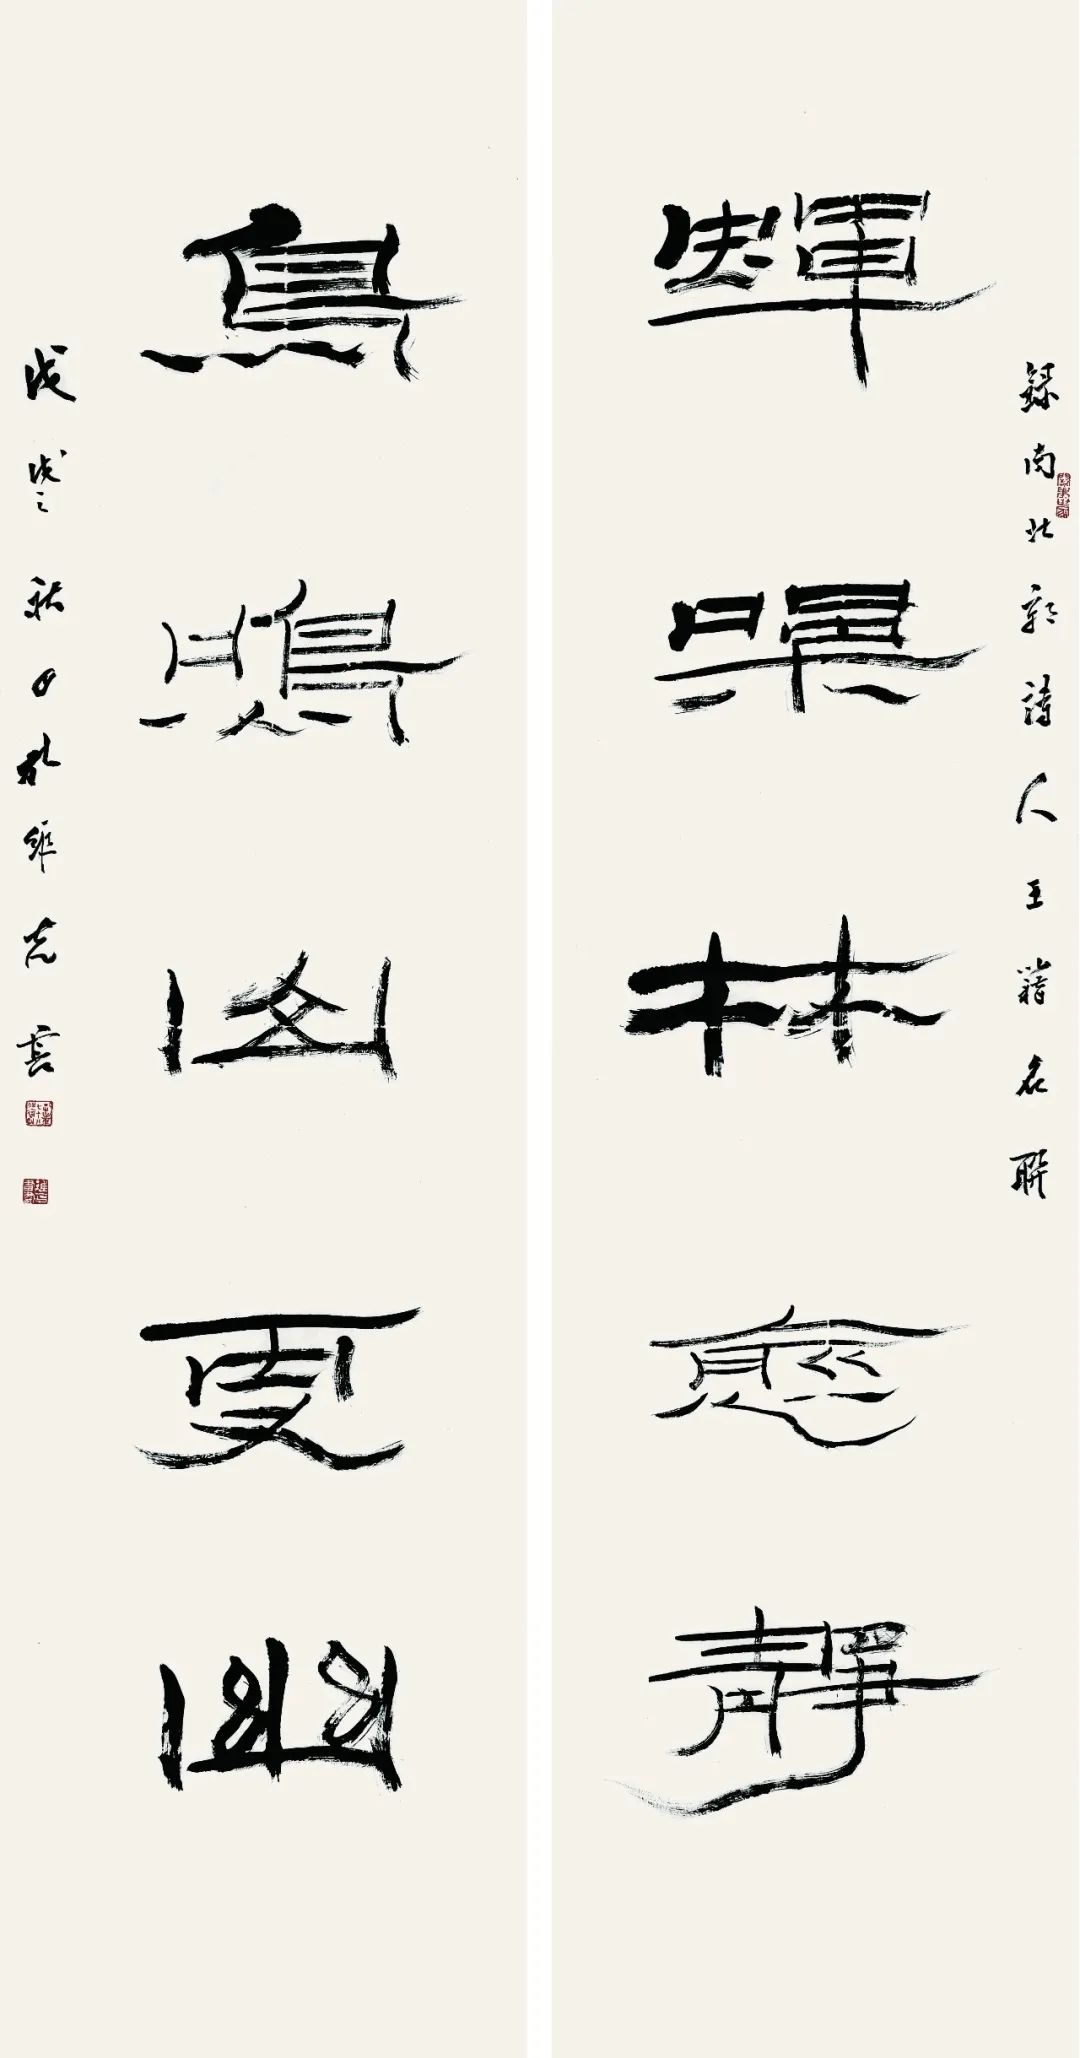 錄南北朝詩人王籍名聯
蟬噪林愈靜
鳥鳴山更幽
戊戌之秋日孔維克書